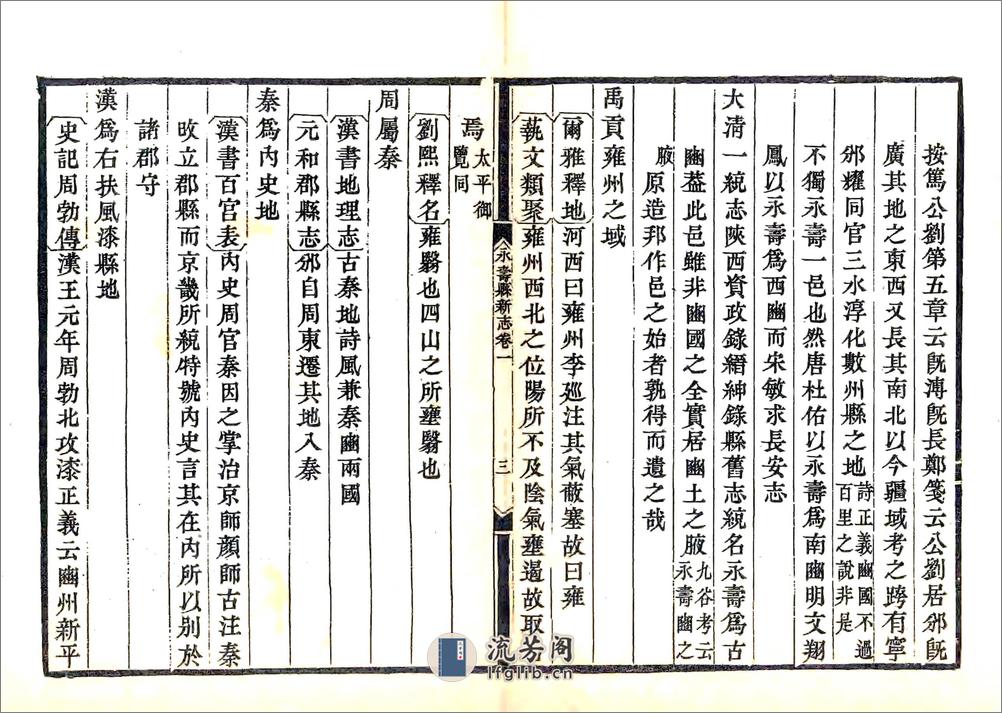 按篤公劉第五章云旣溥旣長鄭箋云公劉居邠旣
廣其地之東西又長其南北以今疆域考之跨有寧
邠耀同官三水淳化數州縣之地詩正義豳國不過
百里之說非是
不獨永壽一邑也然唐杜佑以永壽爲南豳明文翔
鳳以永壽爲西豳而宋敏求長安志
大清一統志陝西資政錄縉紳錄縣舊志統名永壽爲古
豳葢此邑雖非豳國之全實居豳土之腋九谷考云
永壽豳之
腋
原造邦作邑之始者孰得而遺之哉
禹貢雍州之域
爾雅釋地河西曰雍州李廵注其氣蔽塞故曰雍
蓺文類聚雍州西北之位陽所不及陰氣壅遏故取
永壽縣新志卷一
三
焉太平御
覽同
劉熙釋名雍翳也四山之所壅翳也
周屬秦
漢書地理志古秦地詩風兼秦豳兩國
元和郡縣志邠自周東遷其地入秦
秦爲內史地
漢書百官表內史周官秦因之掌治京師顏師古注秦
攺立郡縣而京畿所統特號內史言其在內所以别於
諸郡守
漢爲右扶風漆縣地
史記周勃傳漢王元年周勃北攻漆正義云豳州新平
流芳阁
lfglib.cn